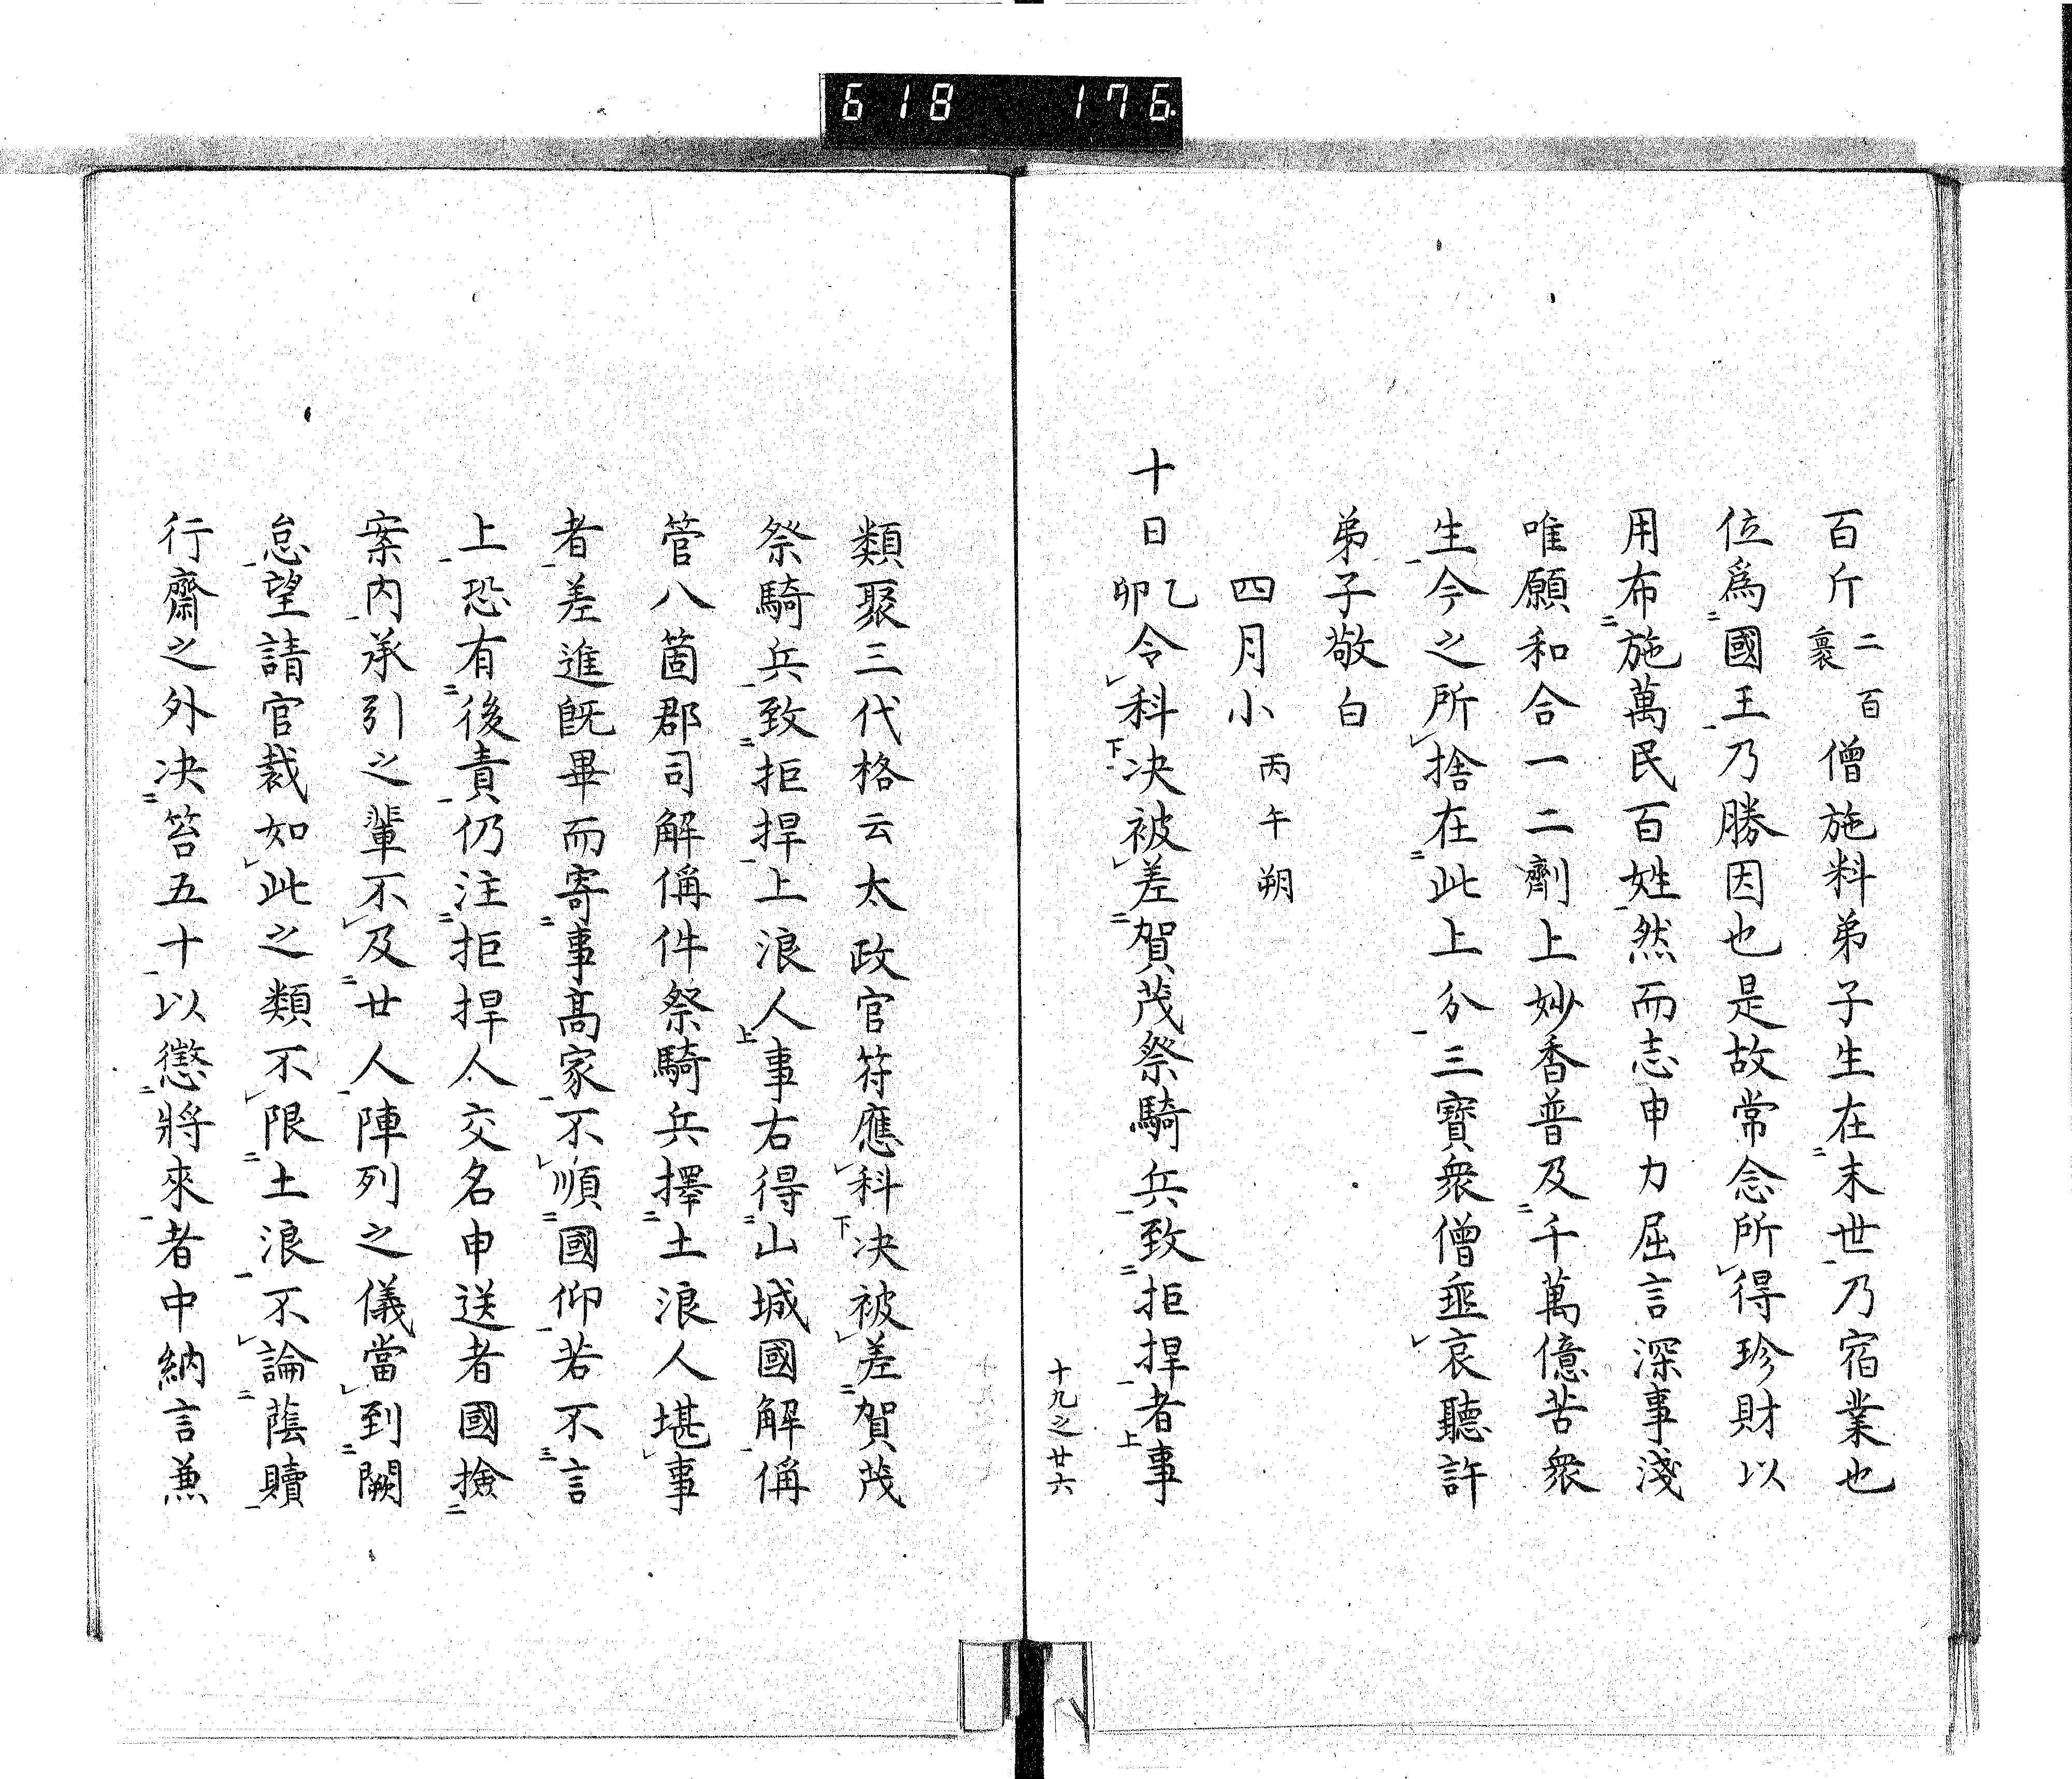 618 176
百斤二百裹僧施料弟子生在末世乃宿業也
位爲國王乃勝因也是故常念所得珍財以
用布施萬民百姓然而志申力屈言深事淺
唯願和合一二劑上妙香普及千萬億苦衆
生今之所捨在此上分三寶衆僧垂哀聽許
弟子敬白
四月小丙午朔
十日乙卯令科决被差賀茂祭騎兵致拒捍者事
十九之廿六
類聚三代格云太政官符應科决被差賀茂
祭騎兵致拒捍上浪人事右得山城國解偁
管八箇郡司解偁件祭騎兵擇土浪人堪事
者差進既畢而寄事髙家不順國仰若不言
上恐有後責仍注拒捍人交名申送者國撿
案内承引之輩不及廿人陣列之儀當到闕
怠望請官裁如此之類不限土浪不論蔭贖
行齋之外决笞五十以懲將來者中納言兼